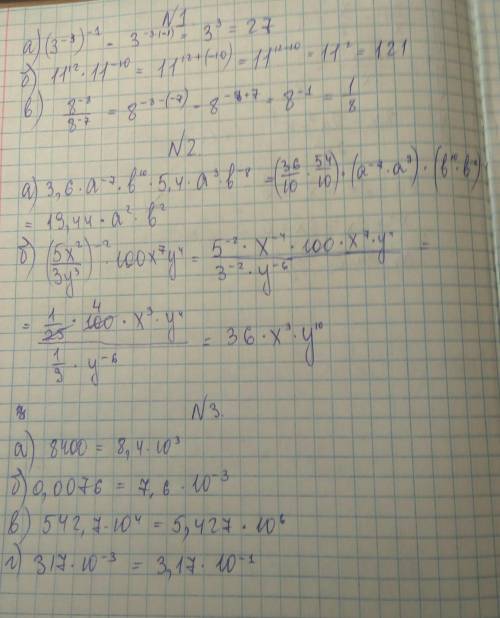 N1
а) (3⁻³)⁻¹ = 3⁻³·⁽⁻¹⁾ = 3³ = 27
б) 11¹² · 11⁻¹⁰ = 11¹²⁺⁽⁻¹⁰⁾ = 11¹²⁻¹⁰ = 11² = 121
в) 8⁻⁸/8⁻⁷ = 8⁻⁸⁻⁽⁻⁷⁾ = 8⁻⁸⁺⁷ = 8⁻¹ = 1/8
N2.
а) 3,6 · a⁻⁷ · b¹⁰ · 5,4 · a⁹ · b⁻⁸ = (36/10 · 54/10) · (a⁻⁷ · a⁹) · (b¹⁰ · b⁻⁸)
= 19,44 · a² · b²
б) (5x²/3y³)⁻² · 100x⁷y⁴ = 5⁻² · x⁻⁴ · 100 · x⁷ · y⁴/3⁻² · y⁻⁶ =
= 1/25 · 100 4 · x³ · y⁴/1/9 · y⁻⁶ = 36 · x³ · y¹⁰
N3.
а) 8400 = 8,4 · 10³
б) 0,0076 = 7,6 · 10⁻³
в) 542,7 · 10⁴ = 5,427 · 10⁶
г) 317 · 10⁻³ = 3,17 · 10⁻¹